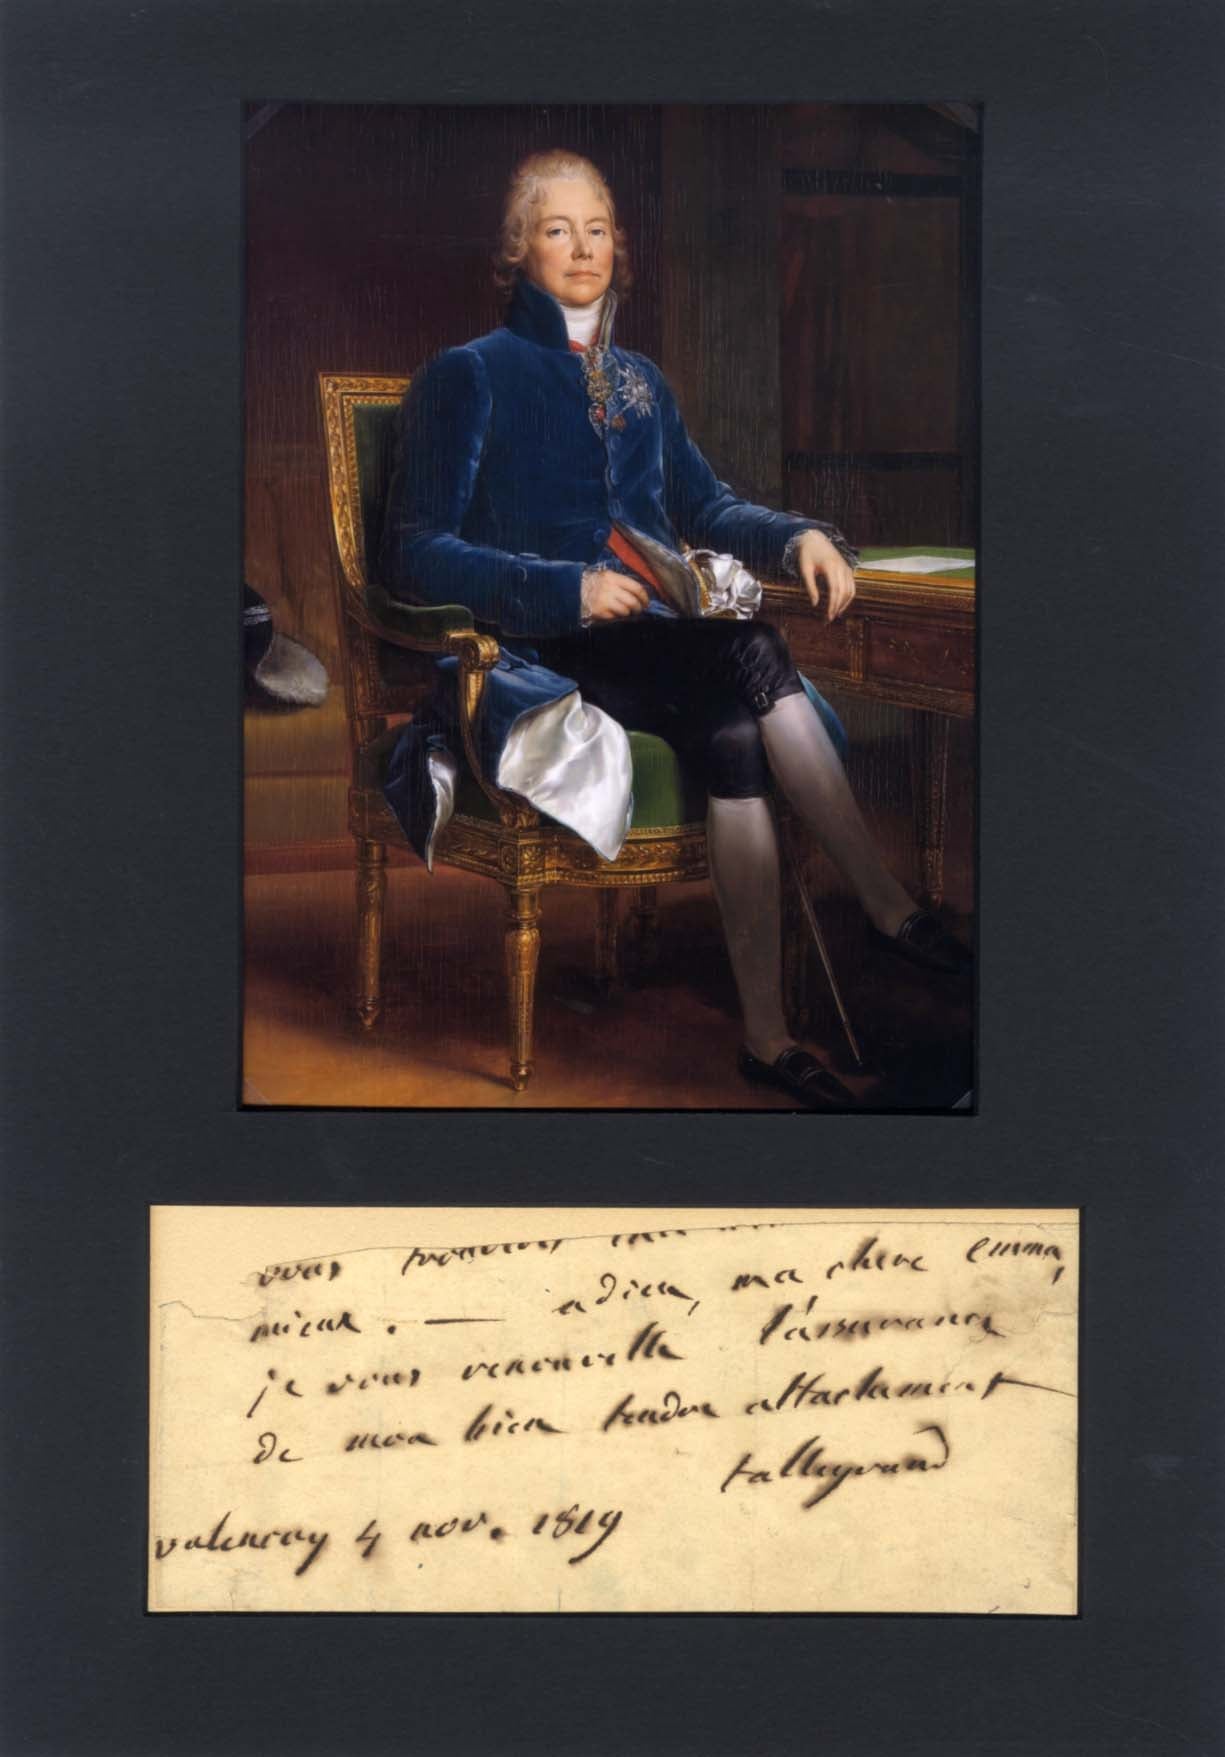 vous trouverez
mieux. — adieu, ma chere emma,
je vous renouvelle l'assurance
de mon bien tendre attachement
talleyrand
valençay 4 nov. 1819